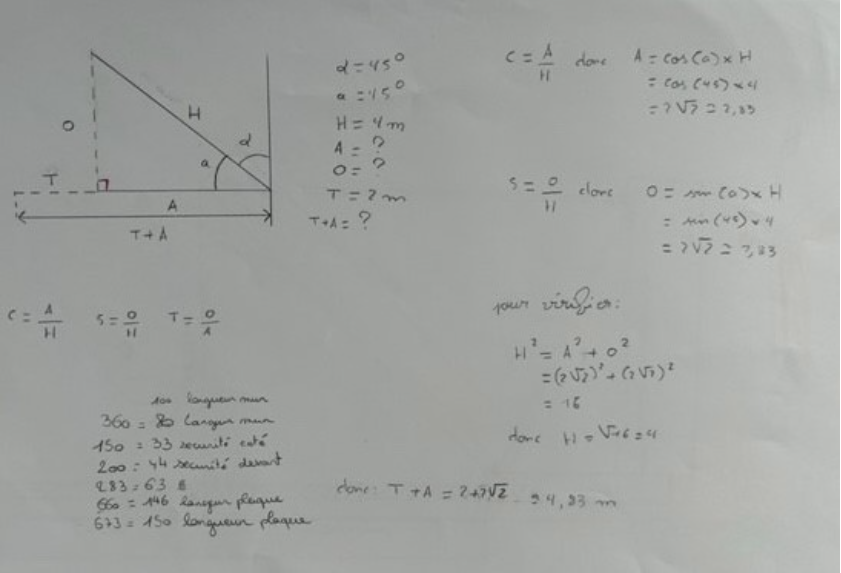 O
H
α
a
T
A
T+A
α = 45°
a = 45°
H = 4 m
A = ?
O = ?
T = 2 m
T+A = ?
C = A/H donc A = cos(a) × H
= cos(45) × 4
= 2√2 = 2,83
S = O/H donc O = sin(a) × H
= sin(45) × 4
= 2√2 = 2,83
C = A/H S = O/H T = O/A
pour vérifier:
H² = A² + O²
= (2√2)² + (2√2)²
= 16
donc H = √16 = 4
donc: T + A = 2+2√2 = 4,83 m
100 longueur mur
360 = 80 largeur mur
150 = 33 securité coté
200 = 44 securité devant
283 = 63
660 = 146 largeur plaque
673 = 150 longueur plaque